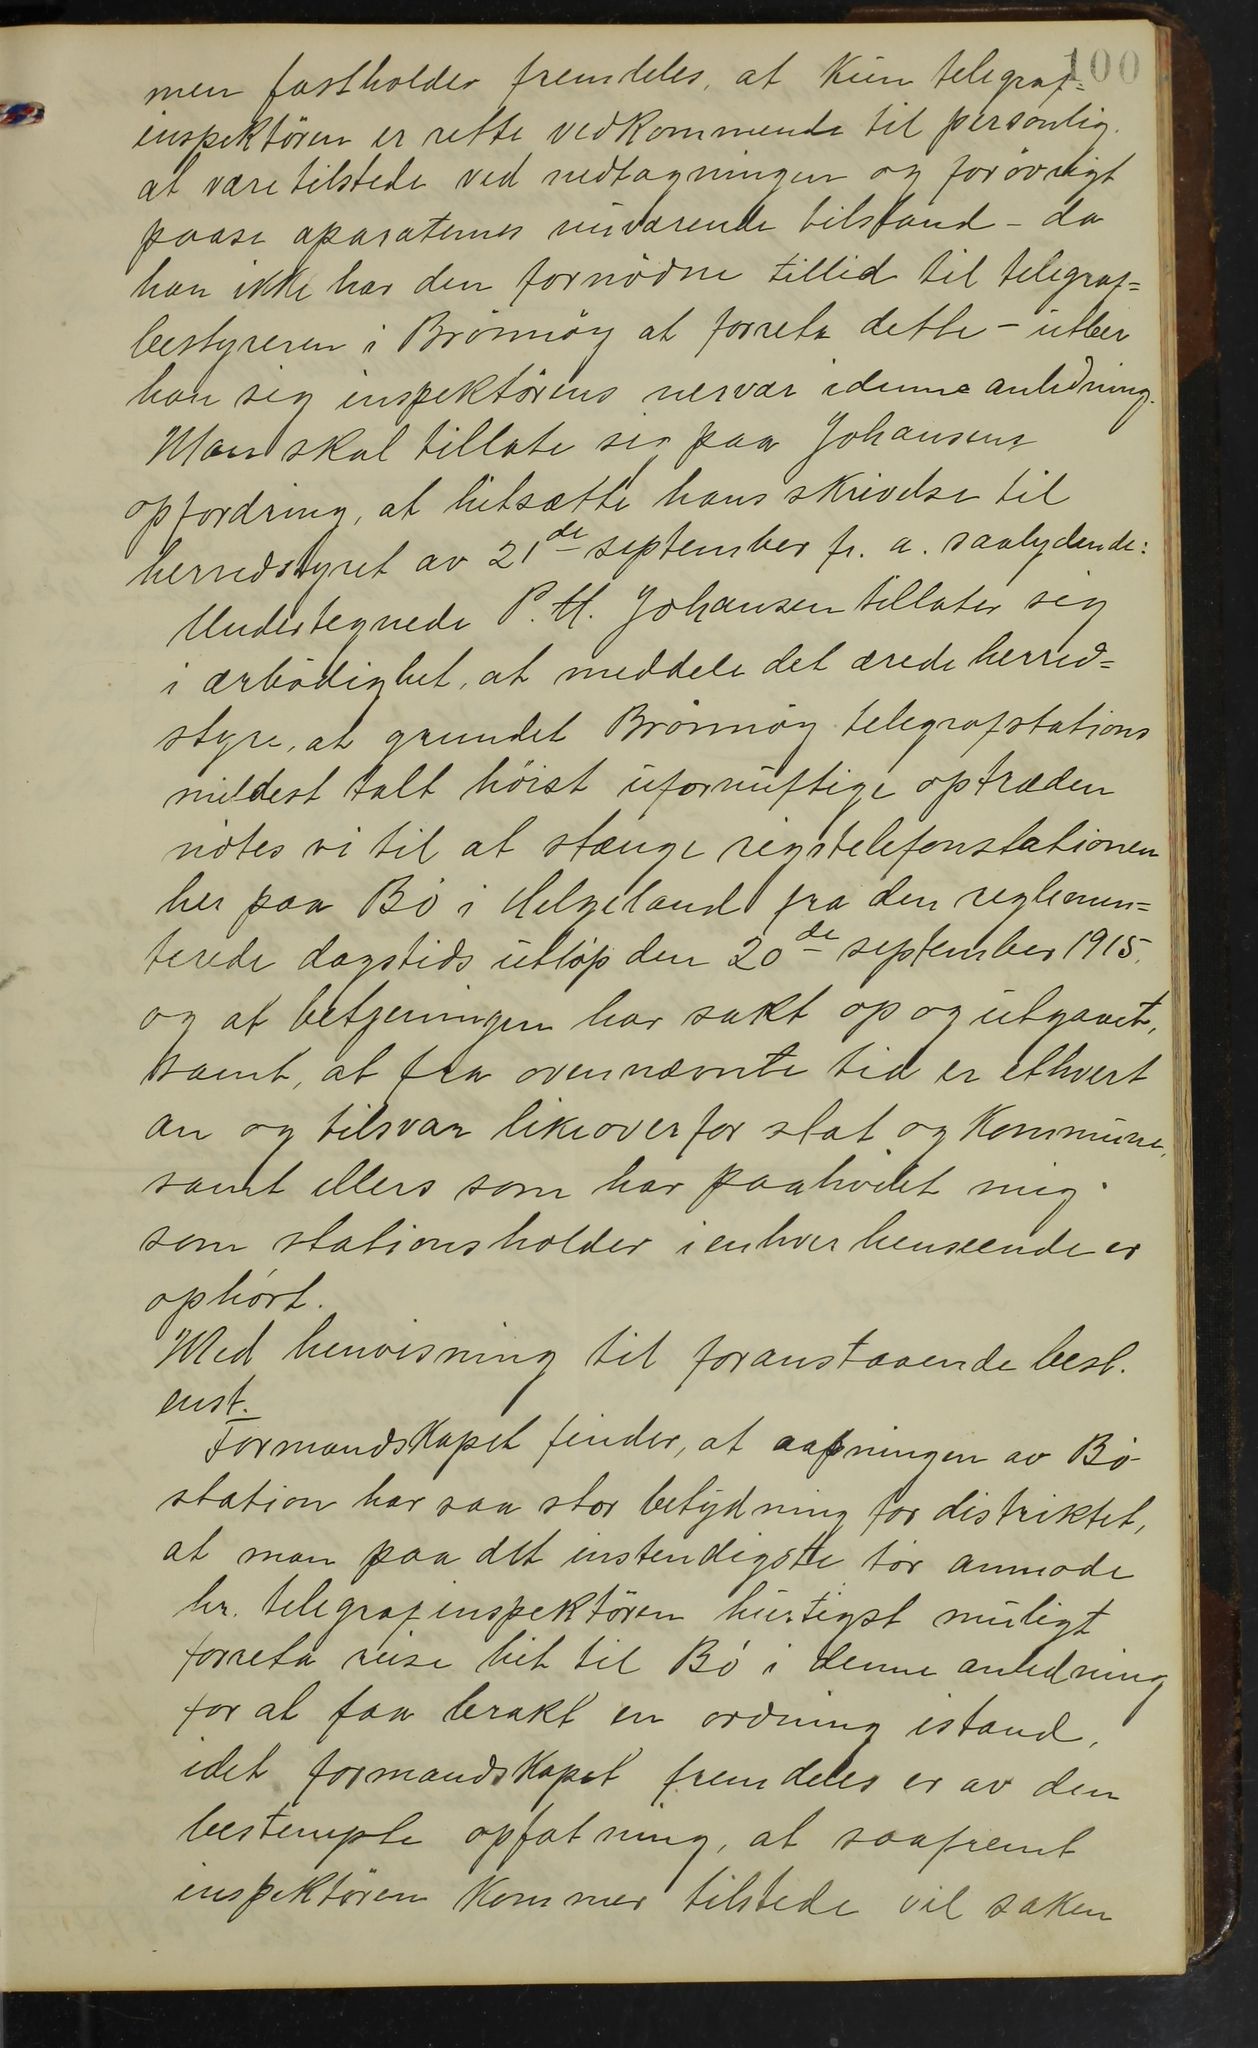 100
men fastholder fremdeles, at kun telegraf=
inspektören er rette vedkommende til personlig.
at være tilstede ved nedtagningen og forövrigt
paase aparaternes nuværende tilstand - da
han ikke har den fornödne tillid til telegraf=
bestyreren i Brönnöy at forreta dette - utber
han sig inspektörens nervær i denne anledning.
Man skal tillate sig paa Johansens
opfordring, at hitsætte hans skrivelse til
herredstyret av 21de september fr. a. saalydende:
Undertegnede P. M. Johansen tillater sig
i ærbödighet, at meddele det ærede herred=
styre, at grundet Brönnöy telegrafstations
mildest talt höist ufornuftige optræden
nötes vi til at stænge rigstelefonstationen
her paa Bö i Helgeland fra den reglemen=
terede dagstids utlöp den 20de september 1915.
og at betjeningen har sakt op og utgaaet,
samt, at fra ovennævnte tid er ethvert
an og tilsvar likeoverfor stat og Kommune,
samt ellers som har paahvilet mig
som stationsholder i enhver henseende er
ophört.
Med henvisning til foranstaaende besl.
enst.
Formandskapet finder, at aapningen av Bö
station har saa stor betydning for distriktet,
at man paa det instendigste tör anmode
hr. telegrafinspektören hurtigst muligt
forreta reise hit til Bö i denne anledning
for at faa brakt en ordning istand,
idet formandskapet fremdeles er av den
bestempte opfatning, at saafremt
inspektören kommer tilstede vil saken